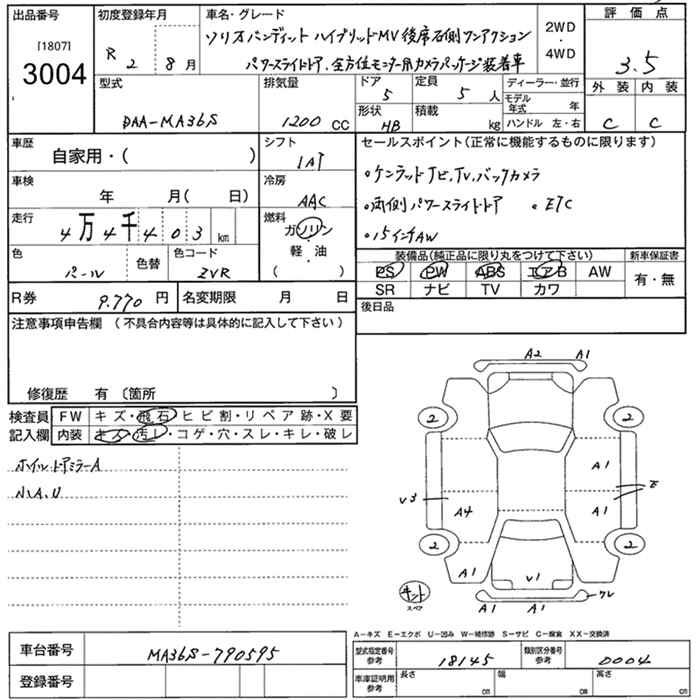 出品番号
[1807]
3004
初度登録年月
R 2 8月
車名・グレード
ソリオバンディット ハイブリッドMV 後席右側ワンアクション
パワースライドドア、全方位モニター用カメラパッケージ装着車
2WD
・
4WD
評価点
3.5
外装 内装
C C
型式
DAA-MA36S
排気量
1200 CC
ドア
5
定員
5 人
形状
HB
積載
kg
ディーラー・並行
モデル年式 年
ハンドル 左・右
車歴
自家用・( )
シフト
IAT
車検
年 月( 日)
冷房
AAC
走行
4万4千403 km
燃料
ガソリン
軽・油
( )
色
パール
色替
色コード
ZVR
R券 9.770 円
名変期限 月 日
セールスポイント(正常に機能するものに限ります)
・ケンウッドナビ、TV、バックカメラ
・両側パワースライドドア ・ETC
・15インチAW
装備品(純正品に限り丸をつけて下さい)
PS PW ABS エアB AW
SR ナビ TV カワ
新車保証書
有・無
後日品
注意事項申告欄(不具合内容等は具体的に記入して下さい)
修復歴 有〔箇所 〕
検査員記入欄
FW キズ・飛石・ヒビ割・リペア跡・X要
内装 キズ・汚レ・コゲ・穴・スレ・キレ・破レ
ホイル ドアミラーA
小A、U
A2 A1
2 2
A1
E
V3 A4 A1
2 2
A1 V1
キット
スペア
A1 A1 ワレ
A－キズ E－エクボ U－凹み W－補修跡 S－サビ C－腐食 XX－交換済
車台番号 MA36S-790595
登録番号
型式指定番号 参考 18145
類別区分番号 参考 0004
車庫証明用 参考
長さ cm
幅 cm
高さ cm